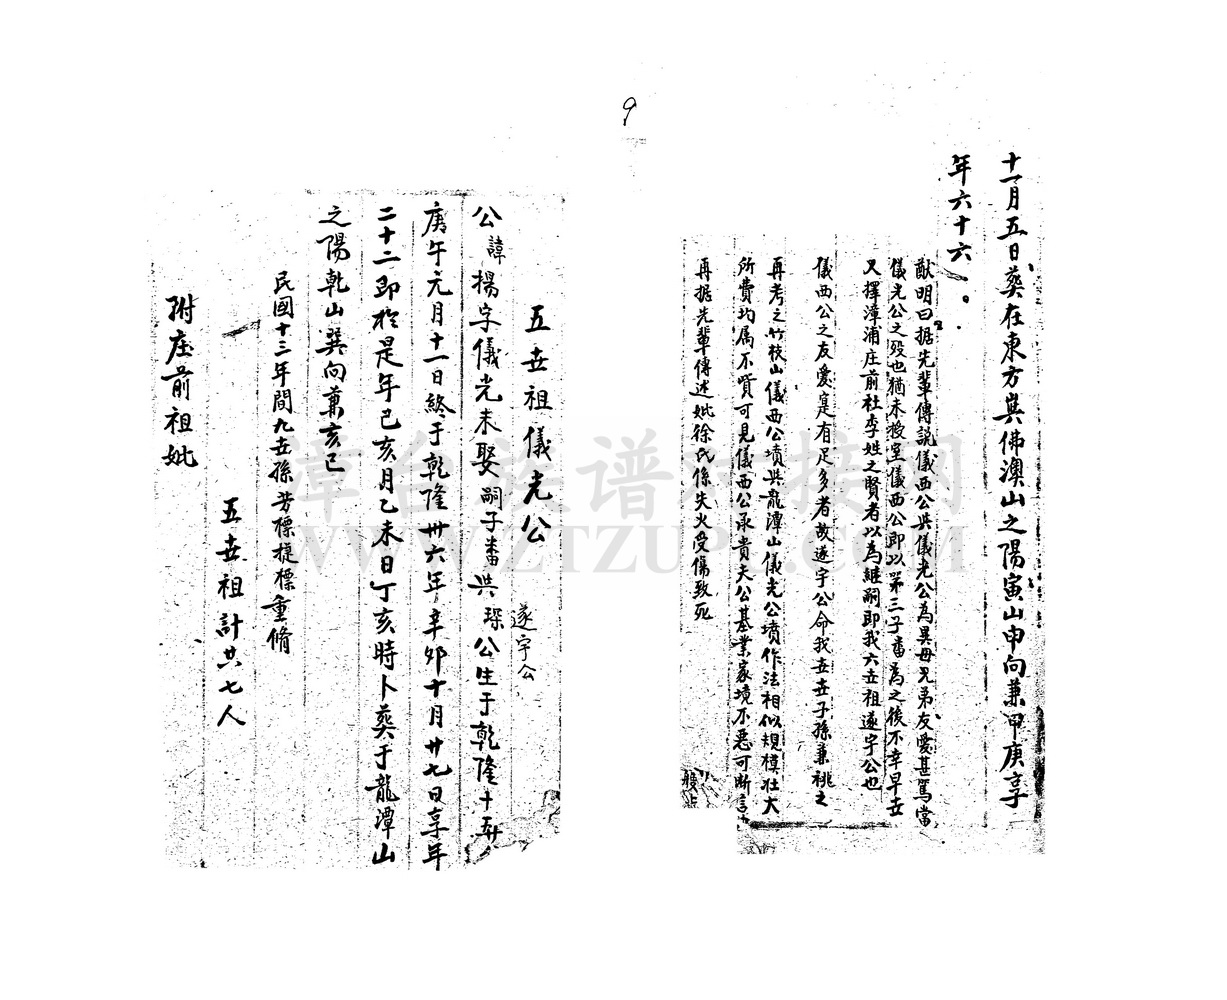 9
十一月五日葬在東方與佛澳山之陽寅山申向兼甲庚享
年六十六。
猷明曰据先輩傳説儀西公與儀光公為異母兄弟友愛甚篤當
儀光公之歿也猶未授室儀西公即以第三子番為之後不幸早世
又擇漳浦庄前社李姓之賢者以為継嗣即我六世祖遂宇公也
儀西公之友愛寔有足多者故遂宇公命我世世子孫兼祧之
再考之竹枝山儀西公墳與龍潭山儀光公墳作法相似規模壯大
所費均属不貲可見儀西公承貴夫公基業家境不惡可断言
再据先輩傳述妣徐氏係失火受傷致死
五世祖儀光公
公諱揚字儀光未娶嗣子番與琛公生于乾隆十五年
遂宇公
庚午元月十一日終于乾隆卅六年辛卯十月廿七日享年
二十二即於是年己亥月乙未日丁亥時卜葬于龍潭山
之陽乾山巽向兼亥巳
民國十三年間九世孫芳標捷標重脩
五世祖計共七人
附庄前祖妣
漳台族谱对接网
WWW.ZTZUPU.COM